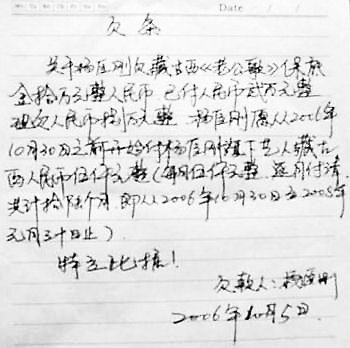 Mo Tu We Th Fr Sa Su Date / /
欠条
关于杨臣刚欠藏古西《老公歌》保底
金拾万元整人民币 已付人民币贰万元整
现欠人民币捌万元整 杨臣刚愿从2006年
10月30日之前开始付杨臣刚旗下艺人藏古
西人民币伍仟元整（每月伍仟元整 逐月付清
共计拾陆个月 即从2006年10月30日至2008年
元月三十日止）
特立此据！
欠款人：杨臣刚
2006年10月5日